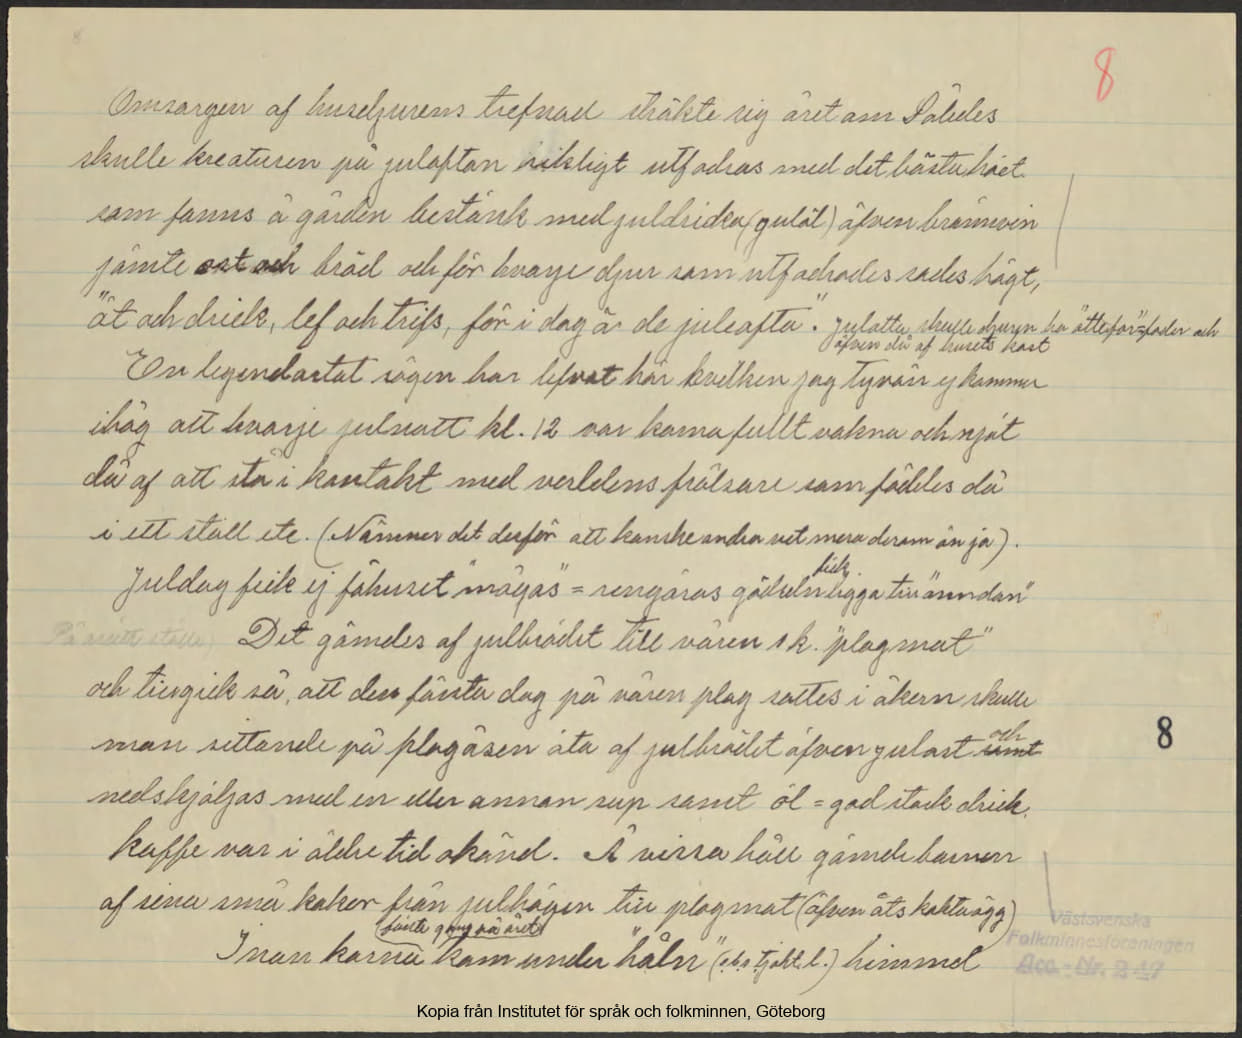 8
8
Omsorgen af husdjurens trefnad sträkte sig året om Således
skulle kreaturen på julaftan rikligt utfodras med det bästa höet
som fanns å gården bestänk med juldricka (julöl) äfven brännevin
jämte ost och bröd och för hvarje djur som utfodrades sades högt,
"ät och drick, lef och trifs, för i dag är de juleafta". Julatta skulle djuren ha "åttefor"=foder och
äfven då af husets kost
En legendartat sägen har lefvat här hvilken jag tyvärr ej kommer
ihåg att hvarje julnatt kl. 12 var korna fullt vakna och njöt
då af att stå i kontakt med verldens frälsare som föddes då
i ett stall etc. (Nämner det derför att kanske andra vet mera derom än ja).
Juldag fick ej fähuset "mögas" = rengöras gödseln fick ligga till "anndan"
På nätt ställe) Det gömdes af julbrödet till våren s k. "plogmat"
och tillgick så, att den första dag på våren plog sattes i åkern skulle
man sittande på plogåsen äta af julbrödet äfven julost samt och
nedsköljas med en eller annan sup samt öl = god stark drick.
kaffe var i äldre tid okänd. Å vissa håll gömde barnen
af sina små kakor från julhögen till plogmat (äfven åts kokta ägg)
(första gång på året)
Innan korna kom under "håln" (obs tjokt l.) himmel
8
Västsvenska
Folkminnesföreningen
Acc.-Nr. 247
Kopia från Institutet för språk och folkminnen, Göteborg